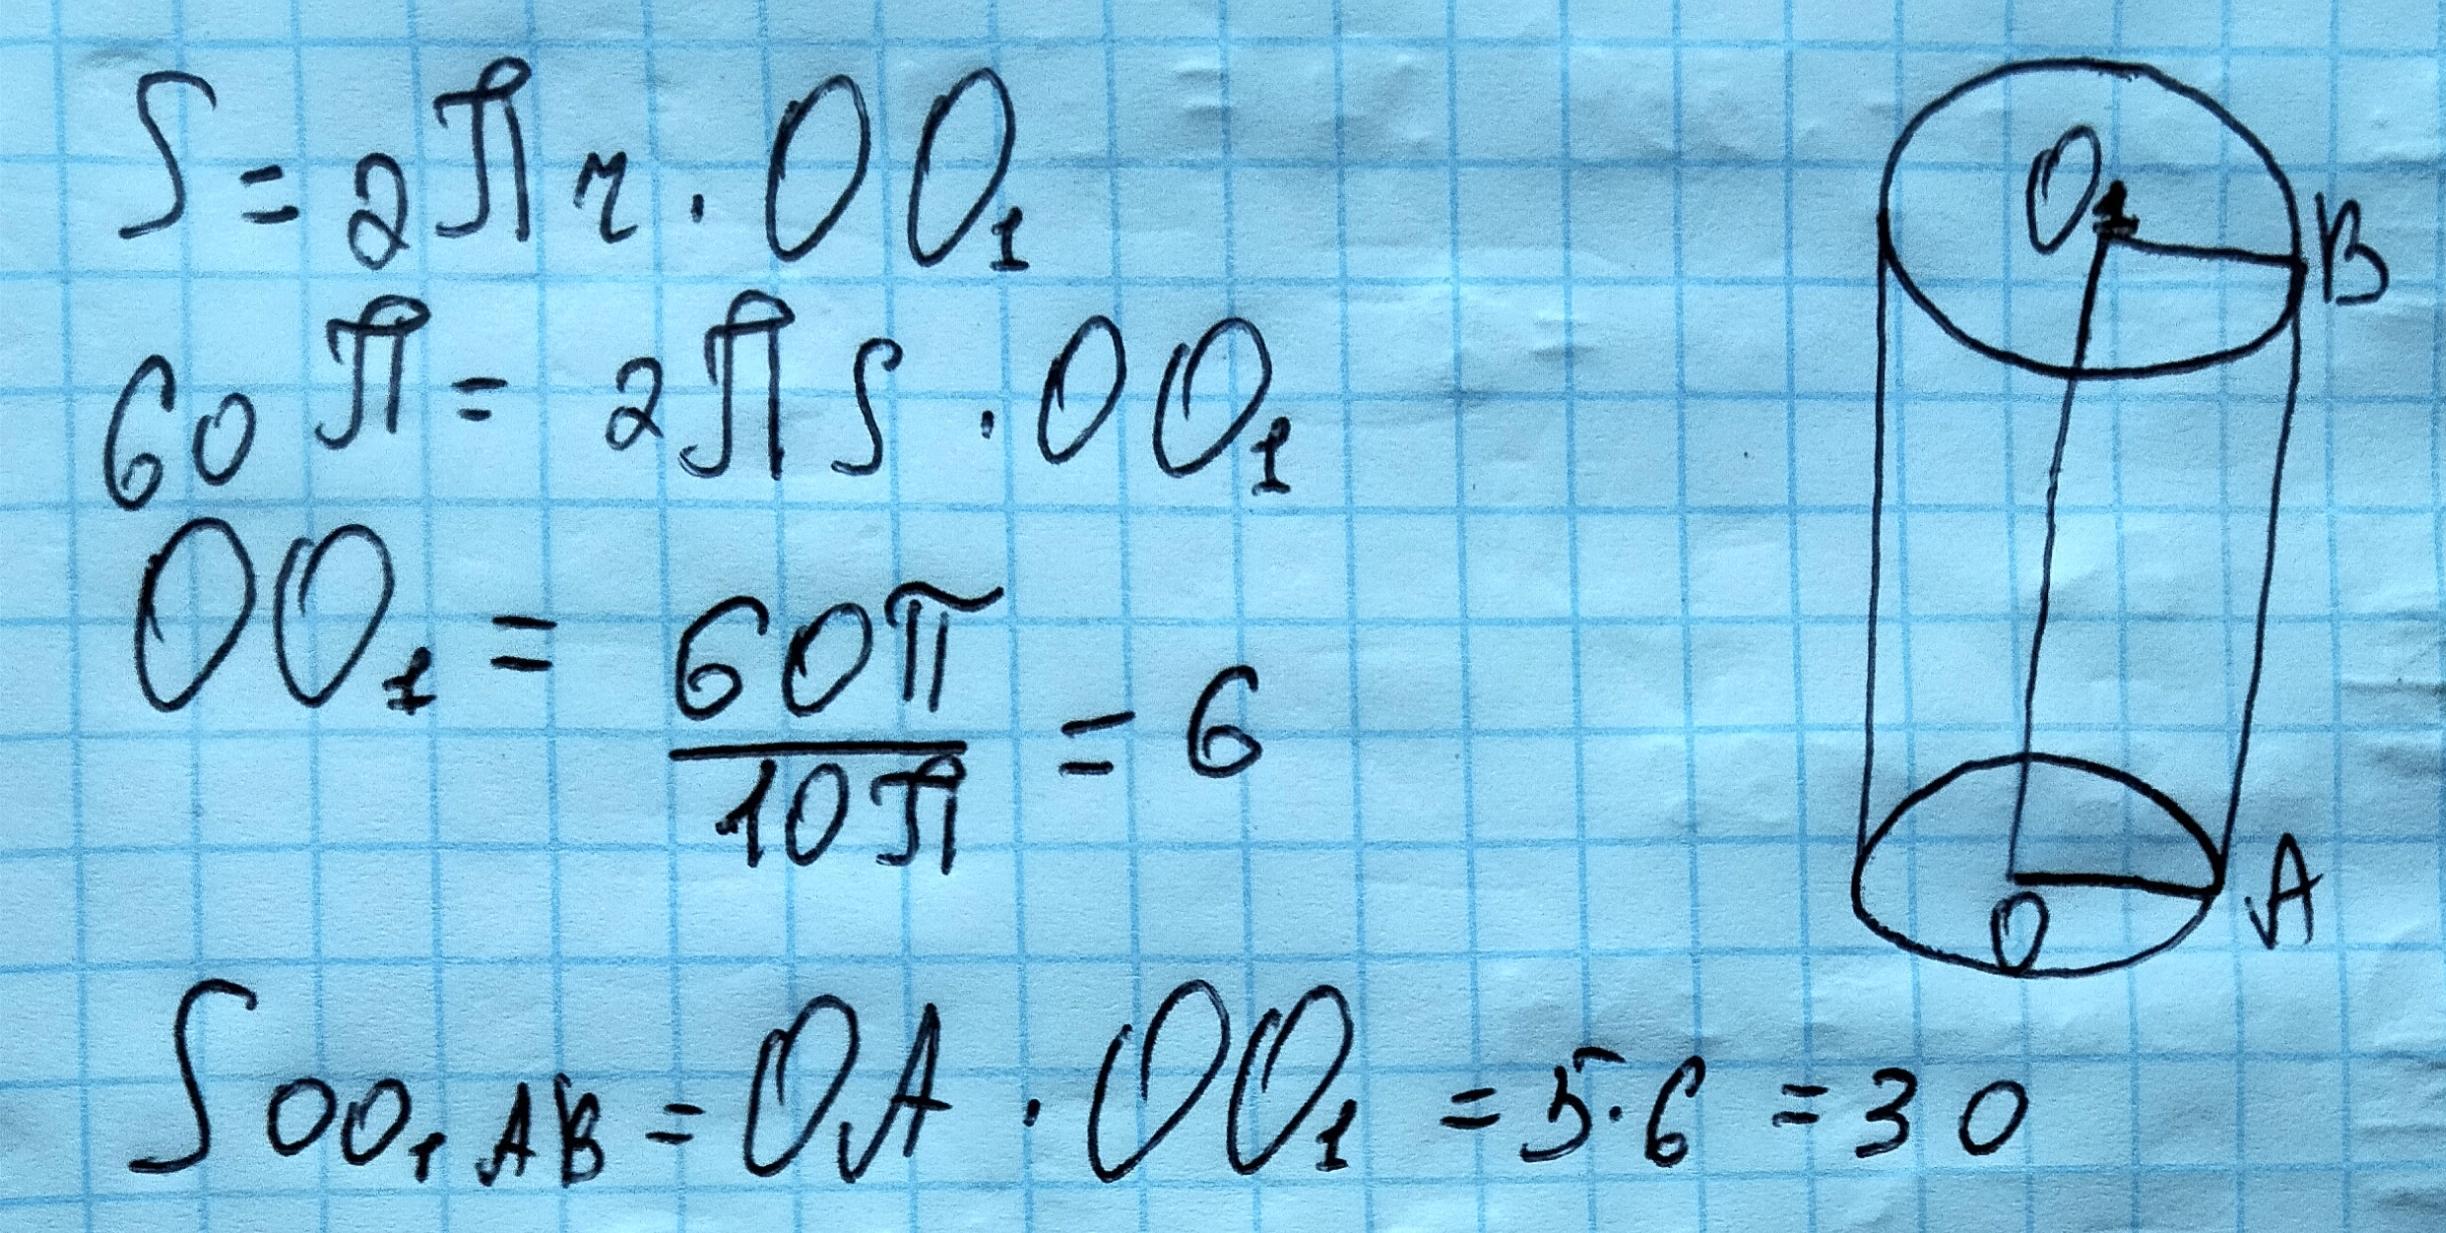 S = 2πr · OO₁
60π = 2π5 · OO₁
OO₁ = 60π/10π = 6
S OO₁AB = OA · OO₁ = 5·6 = 30
O₁
B
A
O